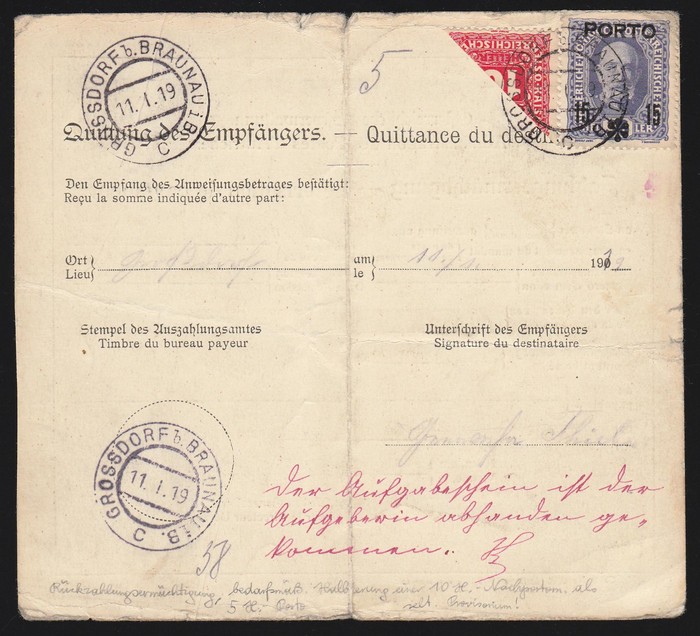 GROSSDORF b. BRAUNAU i. B.
11. I. 19
C
5
PORTO
15 15
LER
Quittung des Empfängers. — Quittance du desti
Den Empfang des Anweisungsbetrages bestätigt:
Reçu la somme indiquée d'autre part:
Ort Großdorf am 11./1. 1919
Lieu le
Stempel des Auszahlungsamtes Unterschrift des Empfängers
Timbre du bureau payeur Signature du destinataire
GROSSDORF b. BRAUNAU i. B.
11. I. 19
C
Der Aufgabeschein ist der
Aufgeberin abhanden ge-
kommen.
58
Rückzahlungsermächtigung, bedarfsmäß. Halbierung einer 10 H.- Nachportom. als
5 H.- Porto selt. Provisorium!